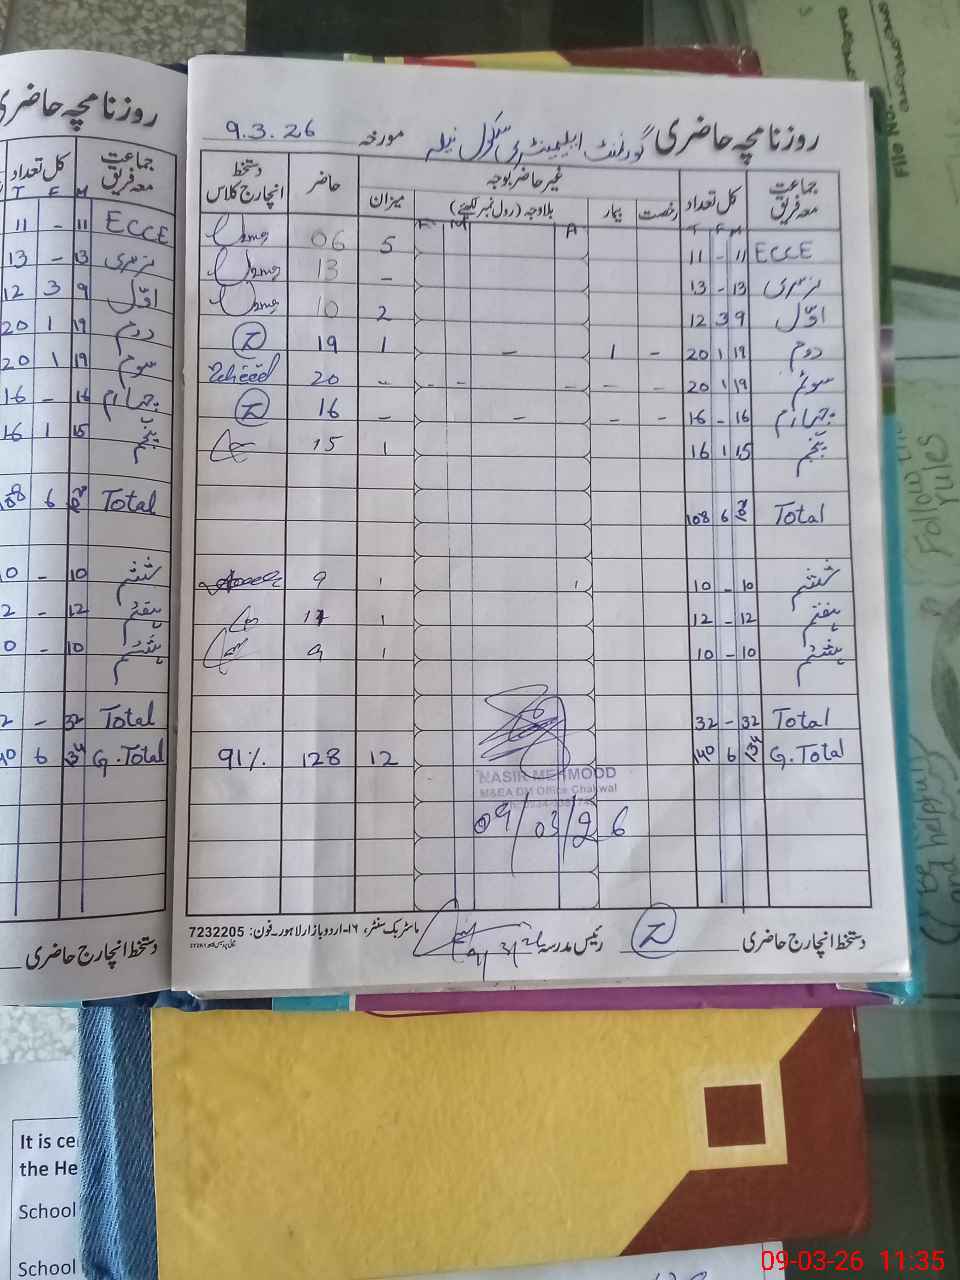 روزنامچہ حاضری گورنمنٹ ایلیمینٹری سکول نیلہ مورخہ 9.3.26
جماعت معہ فریق کل تعداد غیر حاضر بوجہ حاضر دستخط انچارج کلاس
M F T رخصت بیمار بلاوجہ (رول نمبر لکھیے) میزان
A M F
ECCE 11 - 11 5 06
نرسری 13 - 13 - 13
اوّل 9 3 12 2 10
دوم 19 1 20 - 1 - 1 19
سوئم 19 1 20 - - - - - - 20
چہارم 16 - 16 - - - - 16
پنجم 15 1 16 1 15
Total 102 6 108
ششم 10 - 10 1 1 9
ہفتم 12 - 12 1 11
ہشتم 10 - 10 1 9
Total 32 - 32
G.Total 134 6 140 12 128 91%
NASIR MEHMOOD
M&EA DM Office Chakwal
09/03/26
دستخط انچارج حاضری رئیس مدرسہ 9/3/26
ماسٹر بک سنٹر، ۱۶-اردو بازار لاہور-فون: 7232205
روزنامچہ حاضری
جماعت معہ فریق کل تعداد
M F T
ECCE 11 - 11
نرسری 13 - 13
اوّل 9 3 12
دوم 19 1 20
سوم 19 1 20
چہارم 16 - 16
پنجم 15 1 16
Total 102 6 108
ششم 10 - 0
ہفتم 12 - 2
ہشتم 10 - 0
Total 32 - 2
G.Total 134 6 40
دستخط انچارج حاضری
File No.
(Follow the
rules
(Be helpful
and
It is ce
the He
School
School
09-03-26 11:35